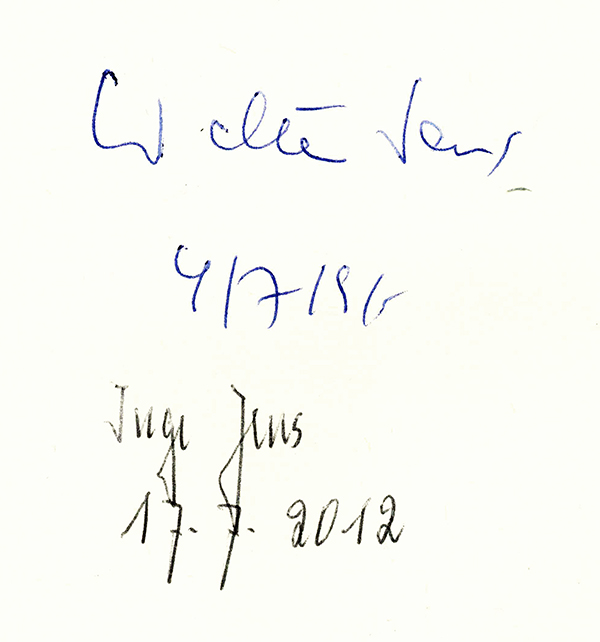 Walter Jens
4/7/96
Inge Jens
17.7.2012